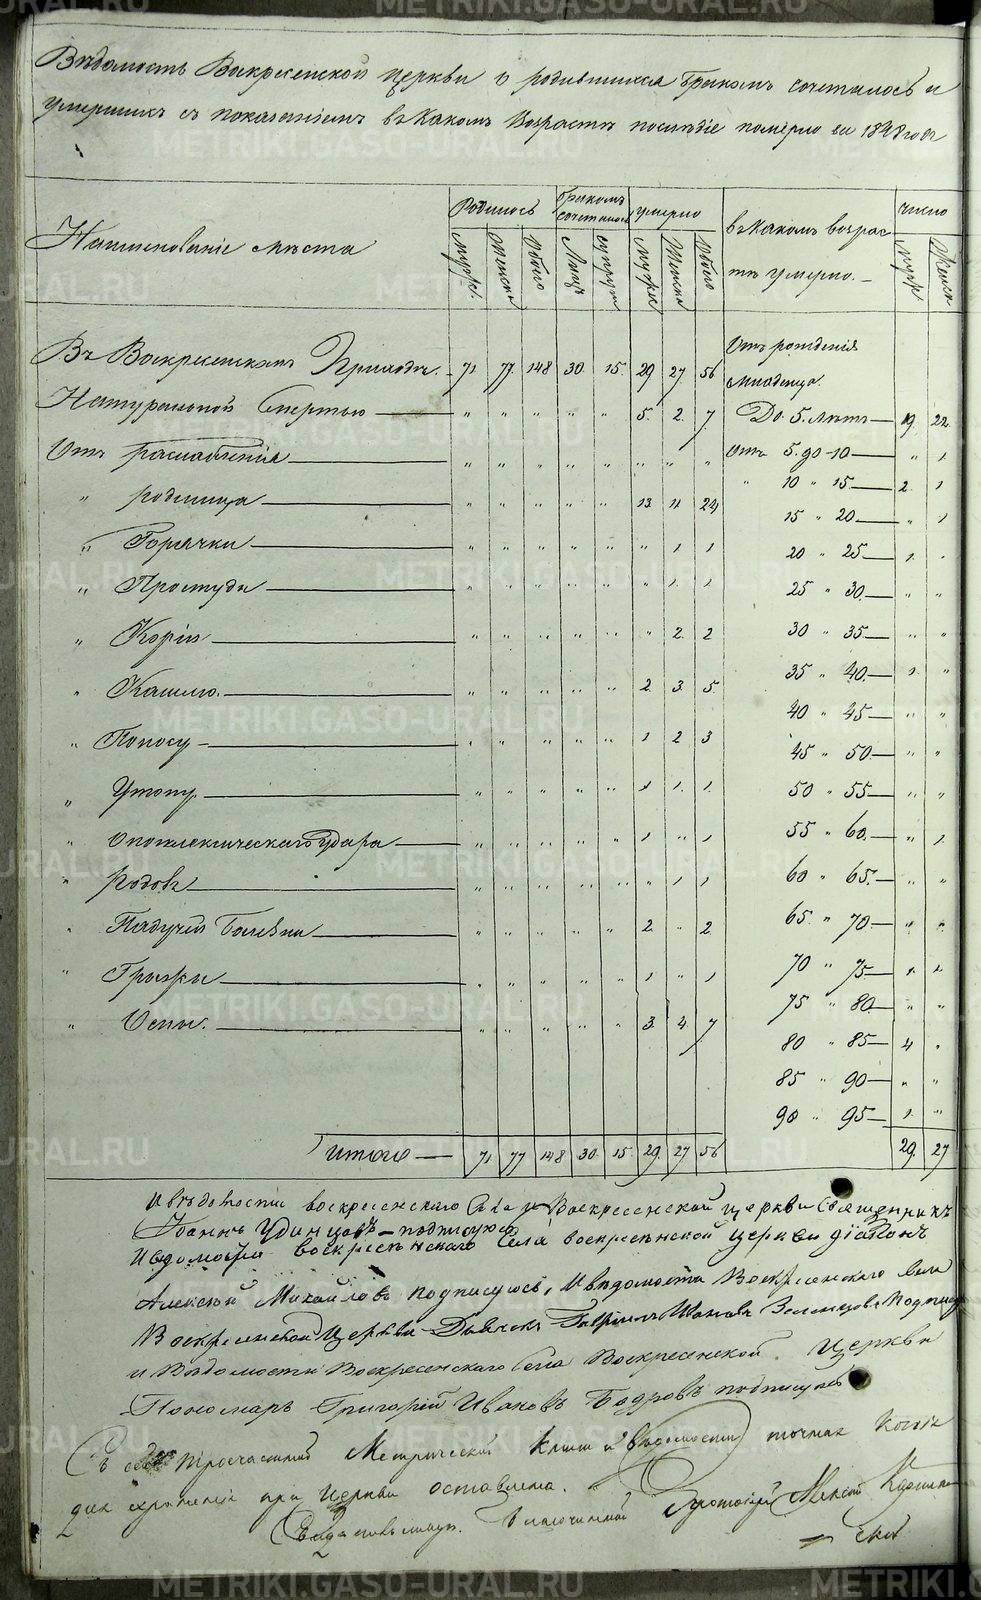 Вѣдомость Воскресенской церкви о родившихся бракомъ сочеталось и
умершихъ съ показаніемъ въ какомъ возрастѣ послѣдіе померло за 1848 годъ
Наимѣнованіе мѣста
Родилось
Мужес.
Женска
Обоего
Бракомъ сочеталось
Лицъ
супруж
умерло
Мужес
Женска
Обоего
въ какомъ возрас-
тѣ умерло.
число
Муж
Женск
Въ Воскресенскомъ Приходѣ. 71 77 148 30. 15. 29. 27 56
Отъ рожденія
младенца.
Натуральной Смертью — " " " " " 5. 2. 7
До 5. лѣтъ — 19. 22.
Отъ разслабленія — " " " " " " " "
Отъ 5. до 10 — " 1
" родимца — " " " " " 13. 11 24
" 10 " 15 — 2. 1
15 " 20 — " 1
" Горячки — " " " " " " 1 1
20 " 25 — 1. "
" Простуды — " " " " " " 1. 1
25 " 30. — " "
" Корѣ — " " " " " " 2 2
30 " 35 — " "
" Кашлю. — " " " " " 2 3. 5
35 " 40. — 1. "
40 " 45 — " "
" Поносу — " " " " " 1 2 3
45 " 50. — " "
" Утопу. — " " " " " " 1. 1.
50 " 55 — " "
" Опоплексическаго Удара — " " " " " 1 " 1
55 " 60. — " 1.
" Родовъ — " " " " " " 1 1
60 " 65. — " "
" Падучей Болезни — " " " " " 2 " 2
65 " 70 — " "
" Грыжи — " " " " " 1 " 1
70 " 75 — 1. 1.
75 " 80. — " "
" Оспы. — " " " " " 3. 4. 7
80 " 85 — 4 "
85 " 90 — " "
90 " 95 — 1. "
итого — 71 77 148 30. 15. 29. 27 56
29. 27
Иведомости воскресенскаго Села Воскресенской церкви священникъ
Іоаннъ Удинцовъ — подписуюсь
Иведомости воскресѣнскаго Села воскресѣнской церкви діаконъ
Алексѣй Михайловъ подписуюсь, Иведомости Воскресенскаго села
Воскресенской Церкви Дьячекъ Гавріилъ Зеленцовъ Подпису
и Ведомости Воскресенскаго села Воскресенской Церкви
Пономарь Григорій Ивановъ Бодровъ подписуюсь
Съ сей тросчастной Метрической Книги и Ведомости точная Копія
для храненія при Церкви оставлена.
Благочинной Протоіерей Алексѣй
METRIKI.GASO-URAL.RU